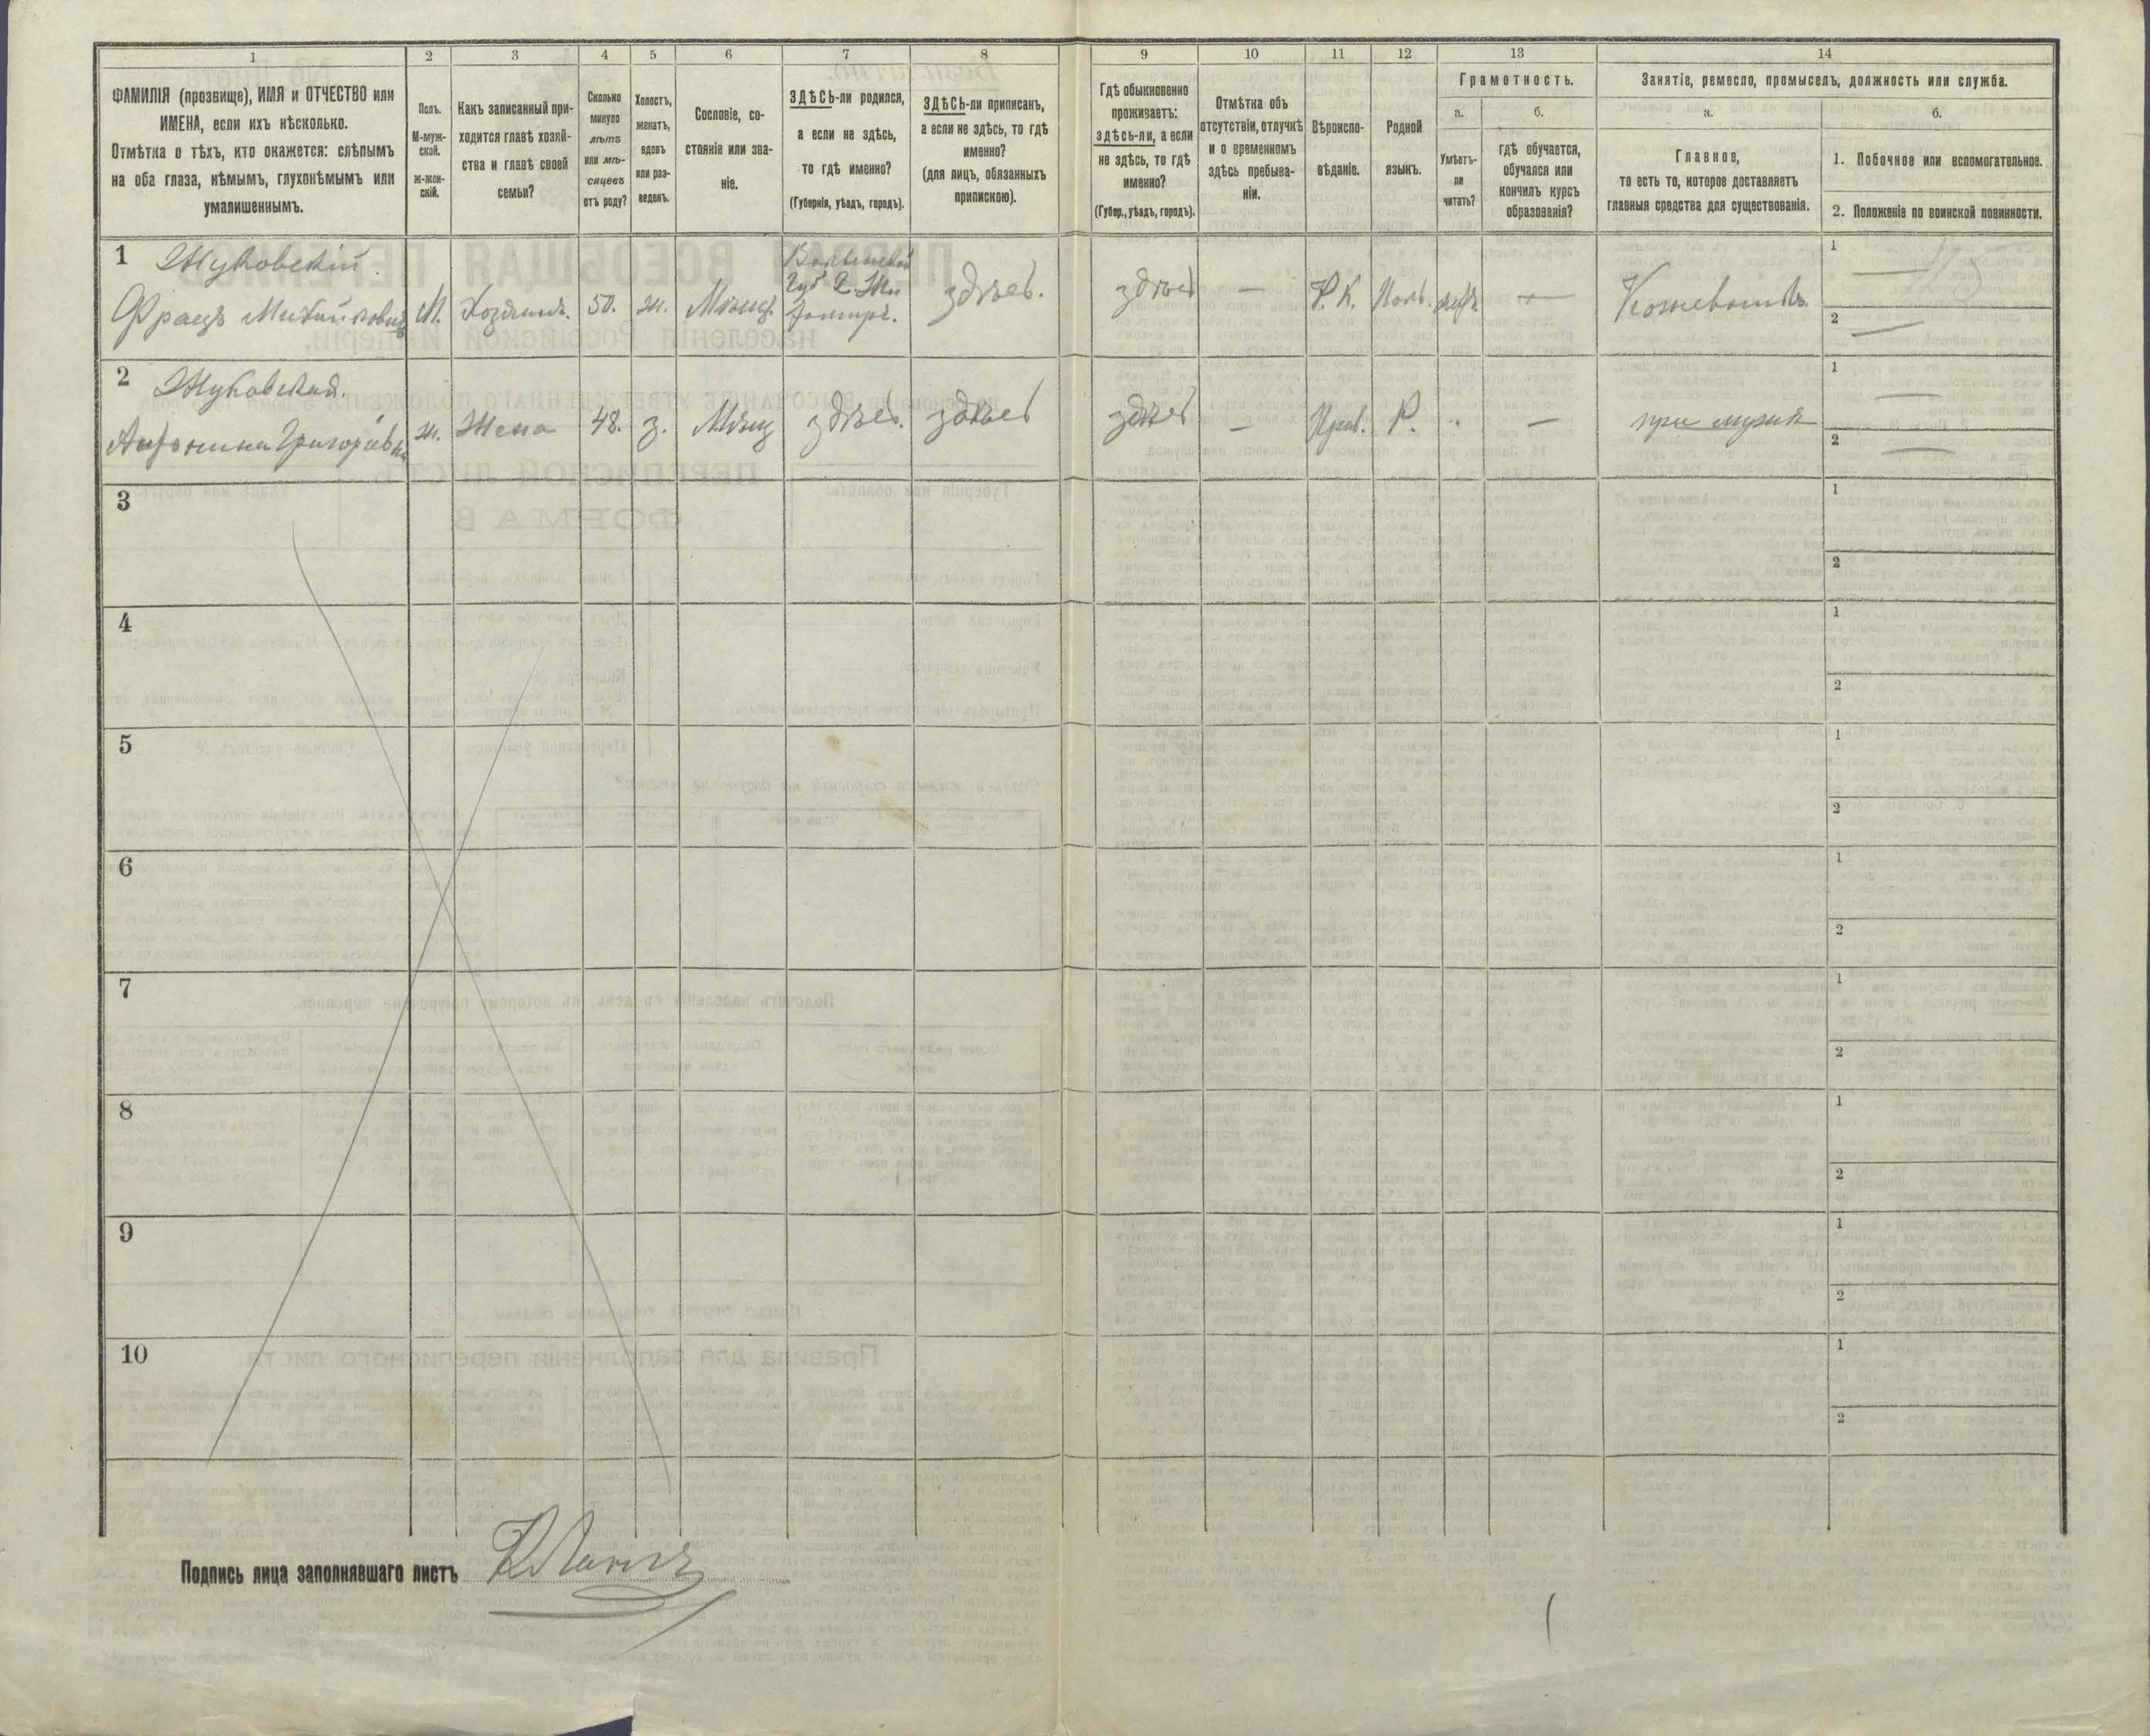 1
2
3
4
5
6
7
8
9
10
11
12
13
14
ФАМИЛІЯ (прозвище), ИМЯ и ОТЧЕСТВО или
ИМЕНА, если ихъ нѣсколько.
Отмѣтка о тѣхъ, кто окажется: слѣпымъ
на оба глаза, нѣмымъ, глухонѣмымъ или
умалишеннымъ.
Полъ.
М-муж-
ской.
Ж-жен-
скій.
Какъ записанный при-
ходится главѣ хозяй-
ства и главѣ своей
семьи?
Сколько
минуло
лѣтъ
или мѣ-
сяцевъ
отъ роду?
Холостъ,
женатъ,
вдовъ
или раз-
веденъ.
Сословіе, со-
стояніе или зва-
ніе.
ЗДѢСЬ-ли родился,
а если не здѣсь,
то гдѣ именно?
(Губернія, уѣздъ, городъ).
ЗДѢСЬ-ли приписанъ,
а если не здѣсь, то гдѣ
именно?
(для лицъ, обязанныхъ
припискою).
Гдѣ обыкновенно
проживаетъ:
здѣсь-ли, а если
не здѣсь, то гдѣ
именно?
(Губер., уѣздъ, городъ).
Отмѣтка объ
отсутствіи, отлучкѣ
и о временномъ
здѣсь пребыва-
ніи.
Вѣроиспо-
вѣданіе.
Родной
языкъ.
Грамотность.
а.
Умѣетъ-
ли
читать?
б.
гдѣ обучается,
обучался или
кончилъ курсъ
образованія?
Занятіе, ремесло, промыселъ, должность или служба.
а.
Главное,
то есть то, которое доставляетъ
главныя средства для существованія.
б.
1. Побочное или вспомогательное.
2. Положеніе по воинской повинности.
1 Жуковскій.
Францъ
М.
50.
ж.
Волынской
Губ. Г. Жи
томиръ.
здѣсь.
здѣсь
—
Р. К.
Поль.
—
1 —
2 —
2 Жуковская.
Антонина Григорьевна
ж.
Жена
48.
з.
Мѣщ
здѣсь.
здѣсь
здѣсь
—
Прав.
Р.
"
—
при мужѣ
1 —
2 —
3
1
2
4
1
2
5
1
2
6
1
2
7
1
2
8
1
2
9
1
2
10
1
2
Подпись лица заполнявшаго листъ